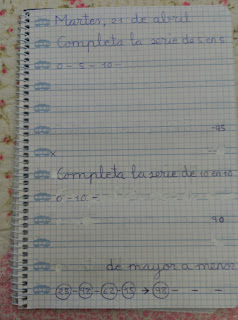 Martes, 21 de abril
Completa la serie de 5 en 5
0 - 5 - 10 -
95
Completa la serie de 10 en 10
0 - 10 -
90
de mayor a menor
25 - 92 - 62 - 35 → 92 - - -